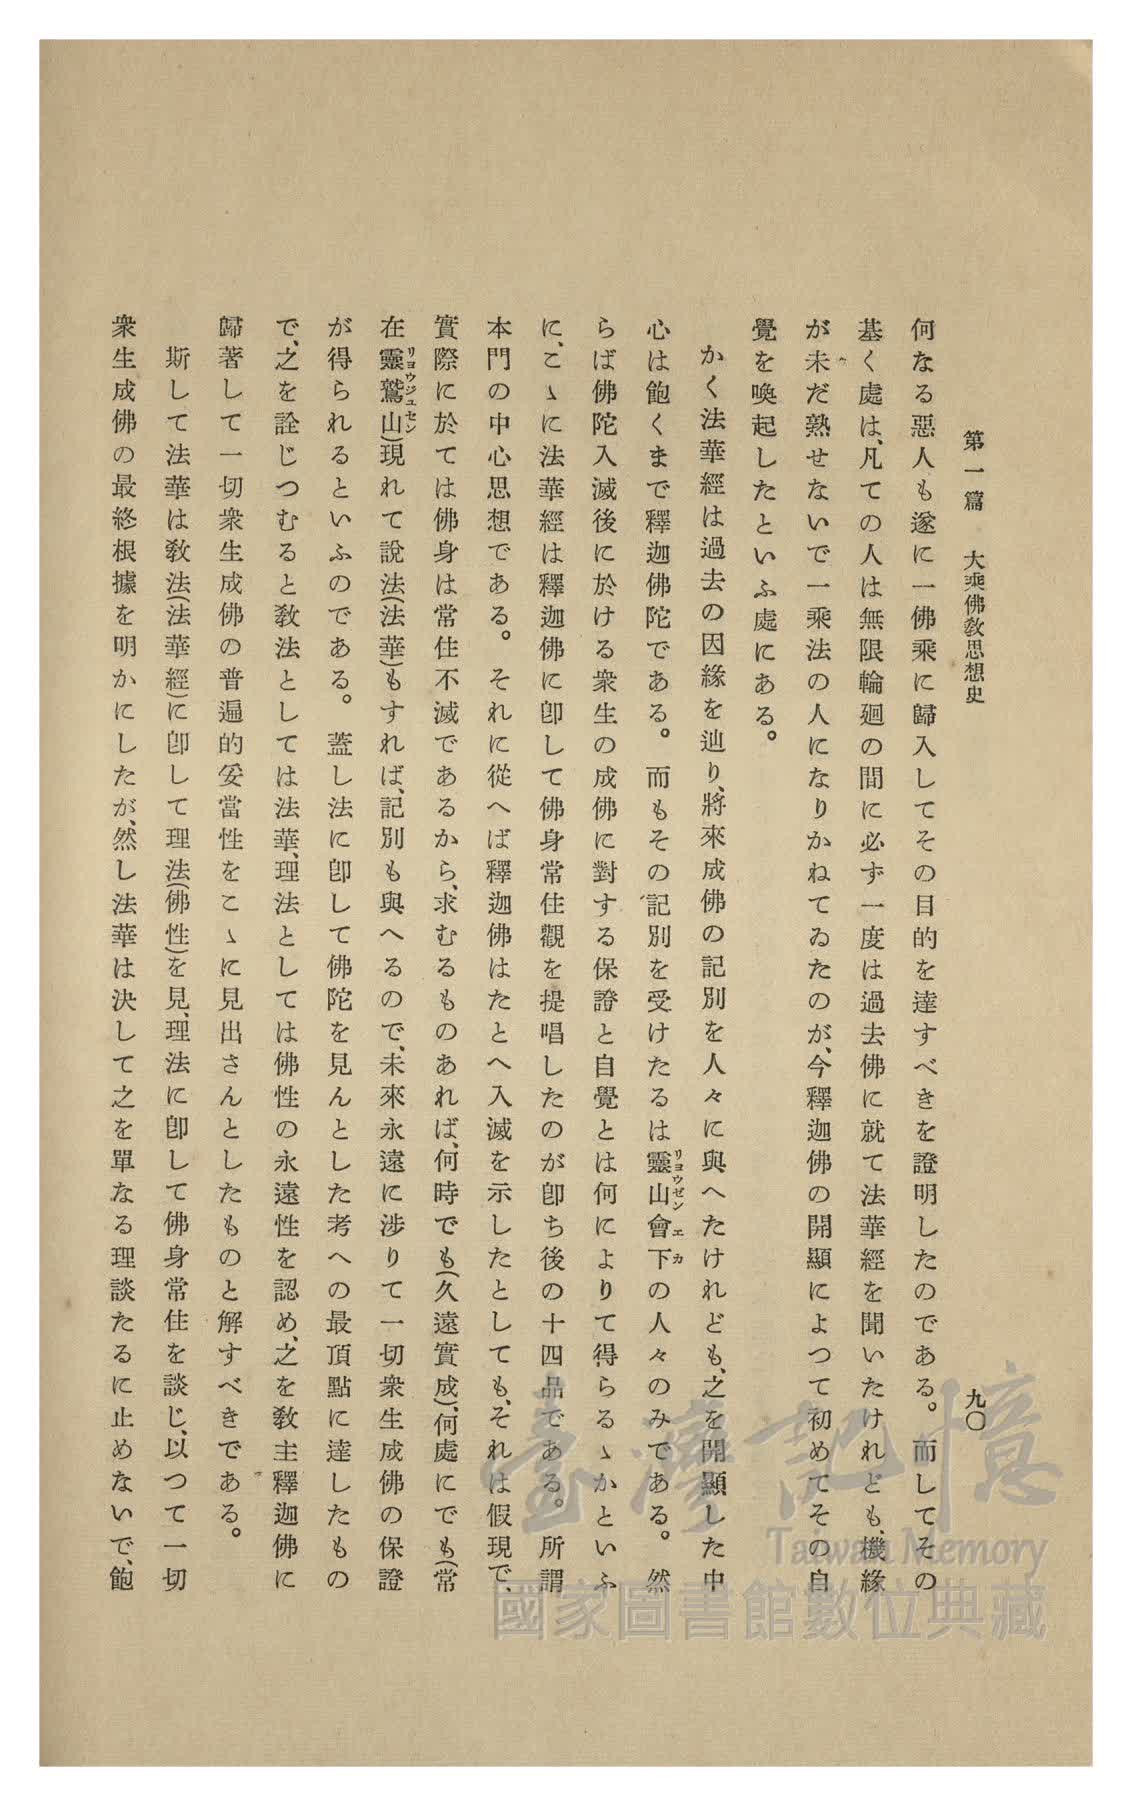 第一篇　大乘佛教思想史
九〇
何なる惡人も遂に一佛乘に歸入してその目的を達すべきを證明したのである。而してその
基く處は、凡ての人は無限輪廻の間に必ず一度は過去佛に就て法華經を聞いたけれども、機緣
が未だ熟せないで一乘法の人になりかねてゐたのが、今釋迦佛の開顯によつて初めてその自
覺を喚起したといふ處にある。
かく法華經は過去の因緣を辿り、將來成佛の記別を人々に與へたけれども、之を開顯した中
心は飽くまで釋迦佛陀である。而もその記別を受けたるは靈山會下の人々のみである。然
リヨウゼンエカ
らば佛陀入滅後に於ける衆生の成佛に對する保證と自覺とは何によりて得らるゝかといふ
に、こゝに法華經は釋迦佛に卽して佛身常住觀を提唱したのが卽ち後の十四品である。所謂
本門の中心思想である。それに從へば釋迦佛はたとへ入滅を示したとしても、それは假現で、
實際に於ては佛身は常住不滅であるから、求むるものあれば、何時でも(久遠實成)、何處にでも(常
在靈鷲山)現れて說法(法華)もすれば、記別も與へるので、未來永遠に涉りて一切衆生成佛の保證
リヨウジユセン
が得られるといふのである。蓋し法に卽して佛陀を見んとした考への最頂點に達したもの
で、之を詮じつむると敎法としては法華、理法としては佛性の永遠性を認め、之を敎主釋迦佛に
歸著して一切衆生成佛の普遍的妥當性をこゝに見出さんとしたものと解すべきである。
斯して法華は敎法(法華經)に卽して理法(佛性)を見、理法に卽して佛身常住を談じ、以つて一切
衆生成佛の最終根據を明かにしたが、然し法華は決して之を單なる理談たるに止めないで、飽
臺灣記憶
Taiwan Memory
國家圖書館數位典藏